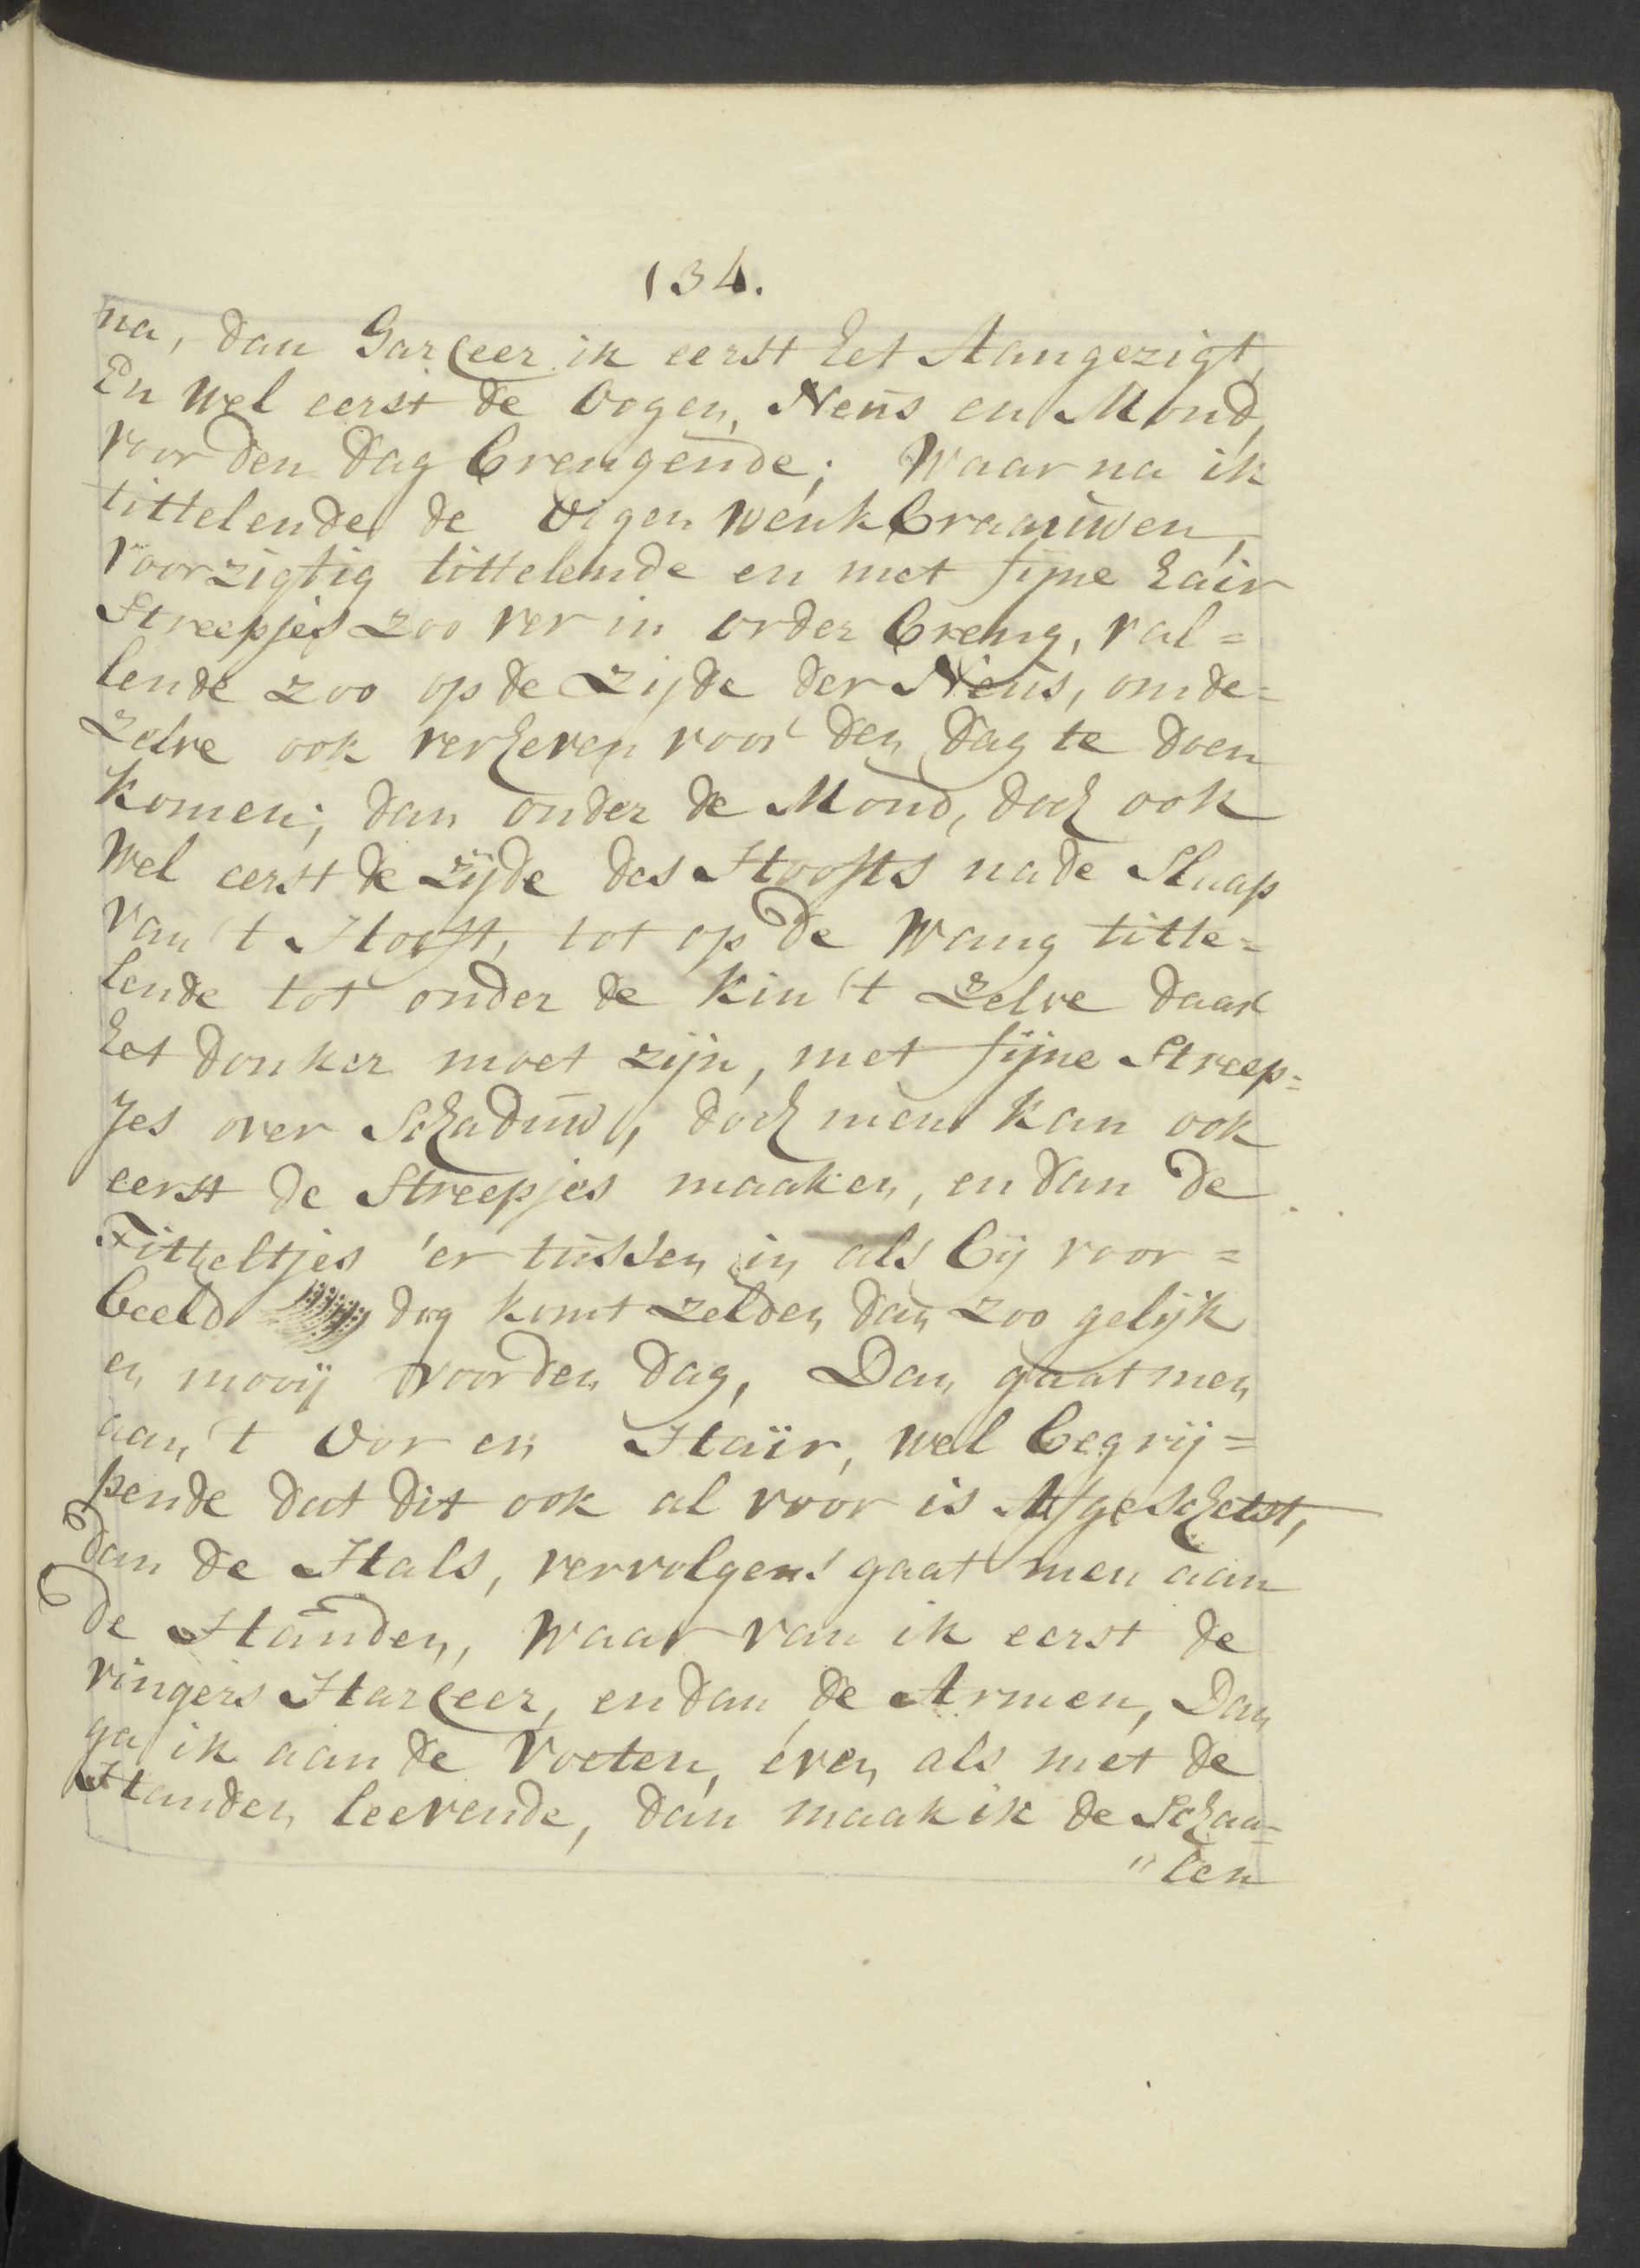 134.
na, dan Harceer ik eerst het Aangezigt,
En wel eerst de Oogen, Neus en Mond,
voor den dag brengende; Waar na ik
tittelende de Oigen wenkbraauwen,
voorzigtig tittelende en met fijne hair
Streepjes zoo ver in order breng, val=
lende zoo op de zijde der Neus, om de=
zelve ook verheven voor den dag te doen
komen; dan onder de Mond, doch ook
Wel eerst de zijde des Hoofts na de Slaap
van 't Hooft, tot op de Wang titte=
lende tot onder de Kin 't zelve daar
het donker moet zijn, met fijne Streep=
Jes over Schaduw, doch men kan ook
eerst de Streepjes maaken, en dan de
Titteltjes 'er tussen in als bij voor=
beeld dog komt zelden dan zoo gelijk
en mooij voor den dag, Dan gaat men
aan 't Oor en Haïr, wel begrij=
pende dat dit ook al voor is Afgeschetst,
dan de Hals, vervolgens gaat men aan
de Handen, Waar van ik eerst de
vingers Harceer, en dan de Armen, Dan
ga ik aan de Voeten, even als met de
Handen leevende, dan maak ik de Schaa=
"len